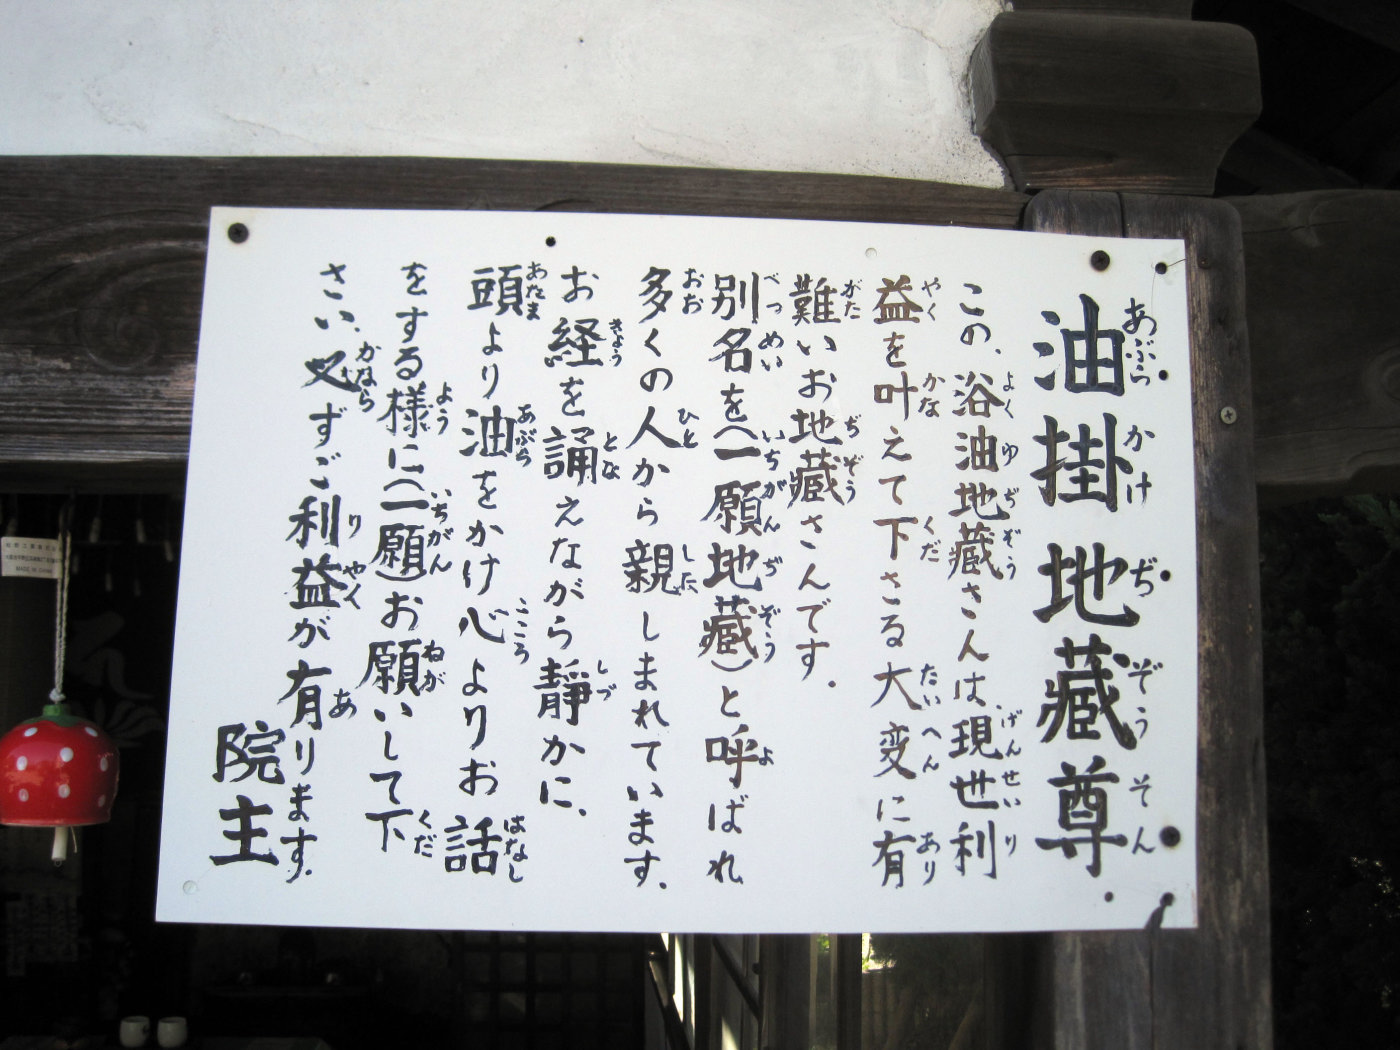 油掛地蔵尊
この、浴油地蔵さんは、現世利
益を叶えて下さる大変に有
難いお地蔵さんです.
別名を(一願地蔵)と呼ばれ
多くの人から親しまれています.
お経を誦えながら静かに、
頭より油をかけ心よりお話
をする様に(一願)お願いして下
さい、必ずご利益が有ります.
院主
MADE IN CHINA